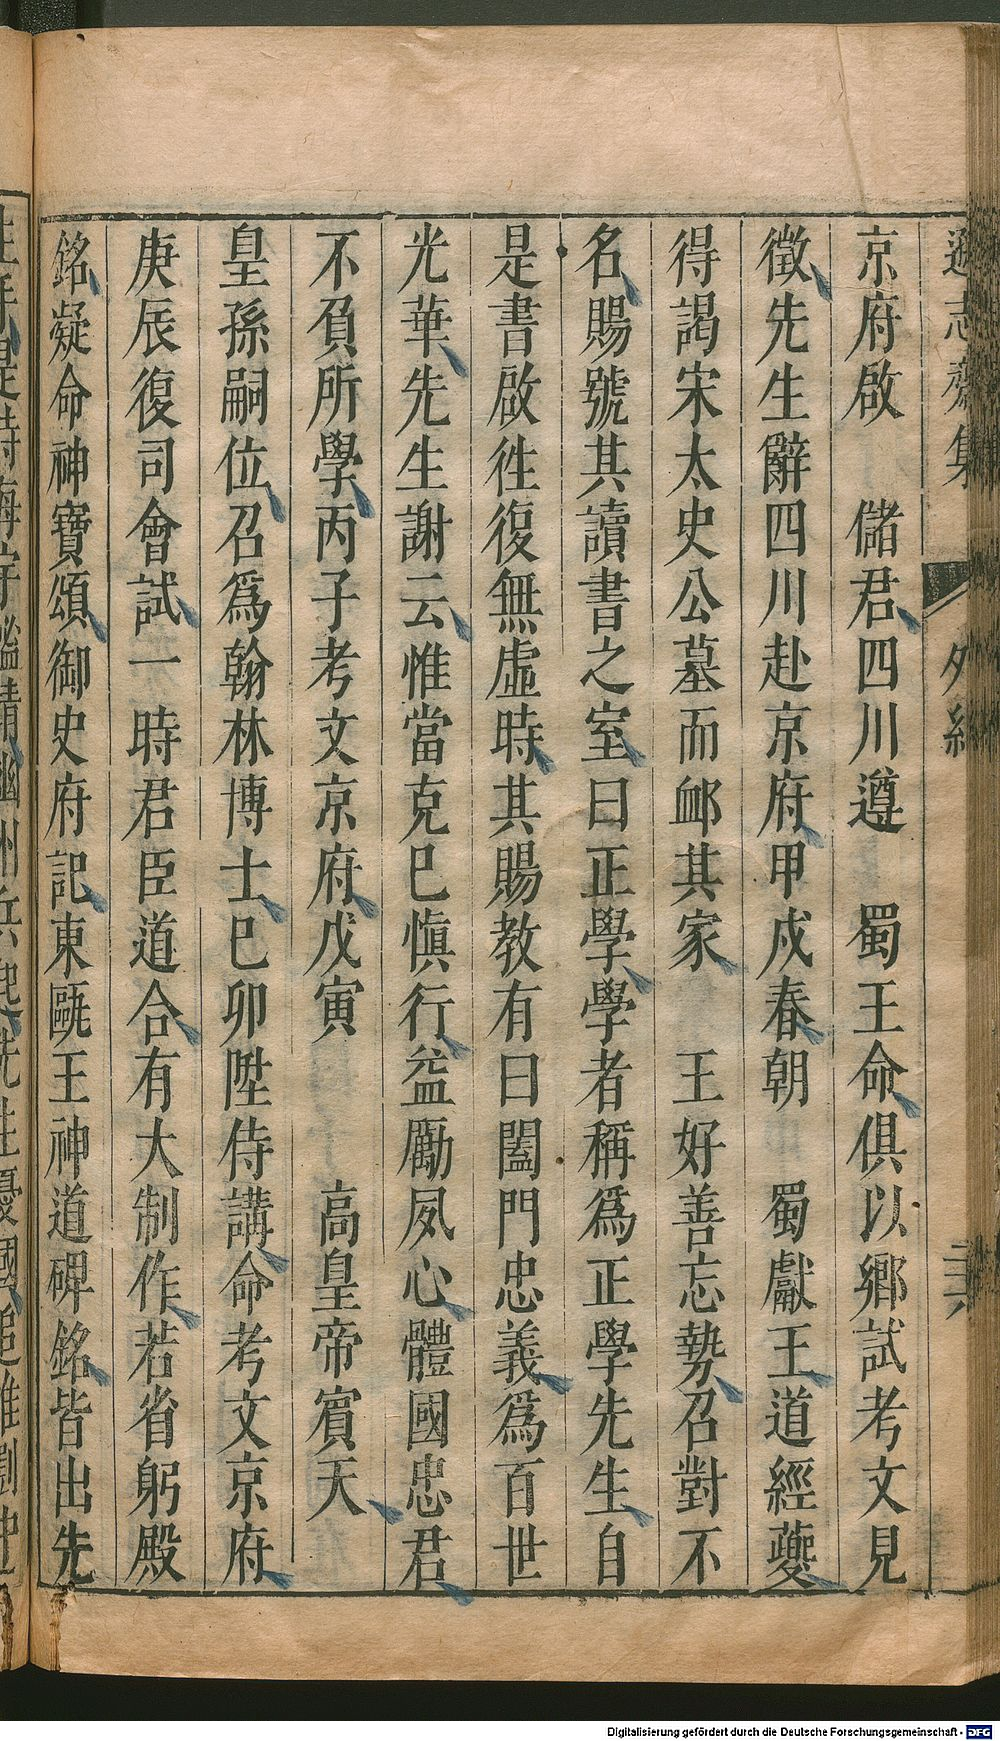 遜志齋集 外紀 二六
京府啟 儲君四川遵 蜀王命俱以鄉試考文見
徵先生辭四川赴京府甲戍春朝 蜀獻王道經夔
得謁宋太史公墓而䘏其家 王好善忘勢召對不
名賜號其讀書之室曰正學學者稱爲正學先生自
是書啟徃復無虛時其賜教有曰闔門忠義爲百世
光華先生謝云惟當克巳愼行益勵夙心體國忠君
不負所學丙子考文京府戊寅 高皇帝賓天
皇孫嗣位召爲翰林博士巳卯陞侍講命考文京府
庚辰復司會試一時君臣道合有大制作若省躬殿
銘凝命神寶頌御史府記東甌王神道碑銘皆出先
Digitalisierung gefördert durch die Deutsche Forschungsgemeinschaft - DFG